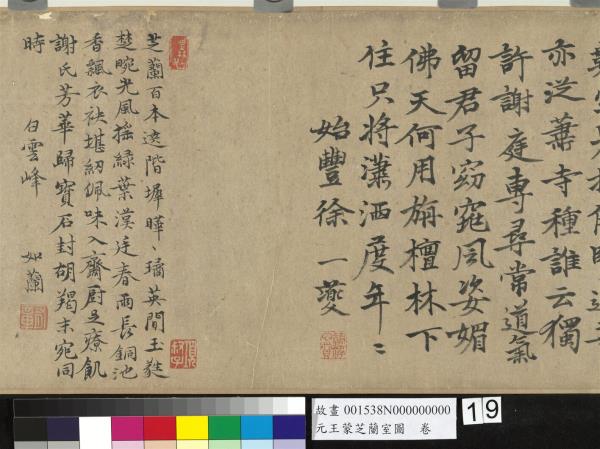 亦從蕭寺種誰云獨
許謝庭專尋常道氣
留君子窈窕風姿媚
佛天何用旃檀林下
住只將瀟洒度年〻
始豐徐一夔
芝蘭百本遶階墀曄〻璚英間玉蕤
楚畹光風搖綠葉漢廷春雨長銅池
香飄衣袂堪紉佩味入齋厨足療飢
謝氏芳華歸寶石封胡羯末宛同
時
白雲峰 如蘭
故畫 001538N000000000
元王蒙芝蘭室圖 卷
19